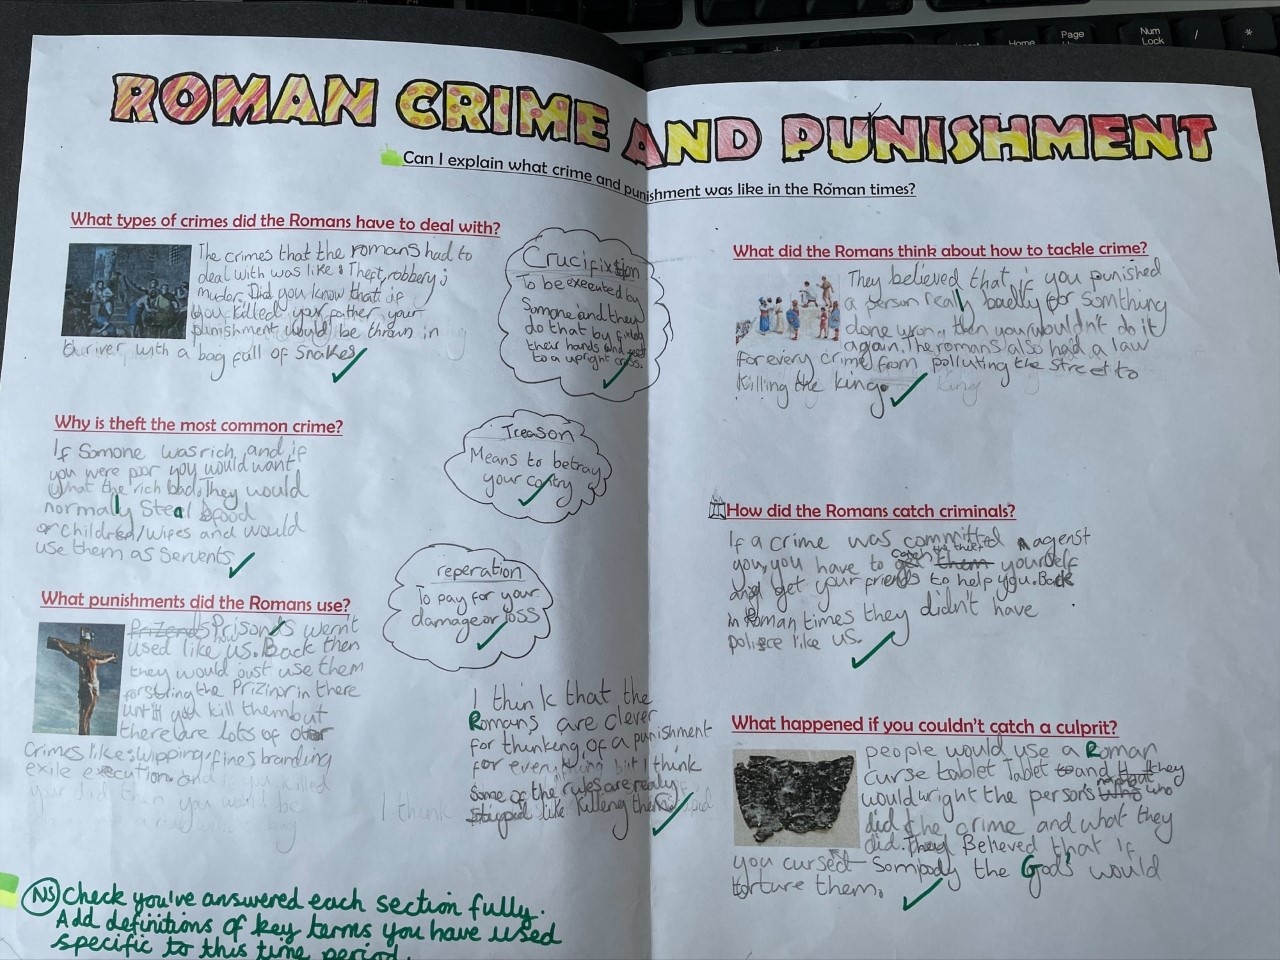 ROMAN CRIME AND PUNISHMENT
Can I explain what crime and punishment was like in the Roman times?
What types of crimes did the Romans have to deal with?
The crimes that the romans had to
deal with was like: Theft, robbery,
Did you know that if
you killed your father your
punishment would be thrown in
river with a bag full of snakes
Why is theft the most common crime?
If Somone was rich and if
you were poor you would want
what the rich had. They would
normally Steal food
or children/wifes and would
use them as servents
What punishments did the Romans use?
Prisons wernt
used like us. Back then
they would just use them
the in there
until you kill them but
there are lots of other
crimes like: wipping, fines branding
exile execution. and killed
your dad then you would be
Crucifixtion
To be executed by
Somone and they
do that by
their hands and feet
to a upright cross.
Treason
Means to betray
your contry
reperation
To pay for your
damage or loss
I think that the
Romans are clever
for thinking of a punishment
for everything but I think
Some of the rules are really
stupid like killeng
I think
NS Check you've answered each section fully.
Add definitions of key terms you have used
specific to this time period.
What did the Romans think about how to tackle crime?
They believed that if you punished
a person really badly for somthing
done wron, then you wouldn't do it
again. The romans also had a law
for every crime from polluting the street to
killing the king. king
How did the Romans catch criminals?
If a crime was committed agenst
you, you have to catch the thief them yourself
and get your friends to help you. Back
in Roman times they didn't have
police like us.
What happened if you couldn't catch a culprit?
people would use a Roman
curse tablet Tablet and they
would wright the person's who
did the crime and what they
did. They Believed that if
you cursed Sombody the Gods would
torture them.
Home
Page
Num
Lock
/
*